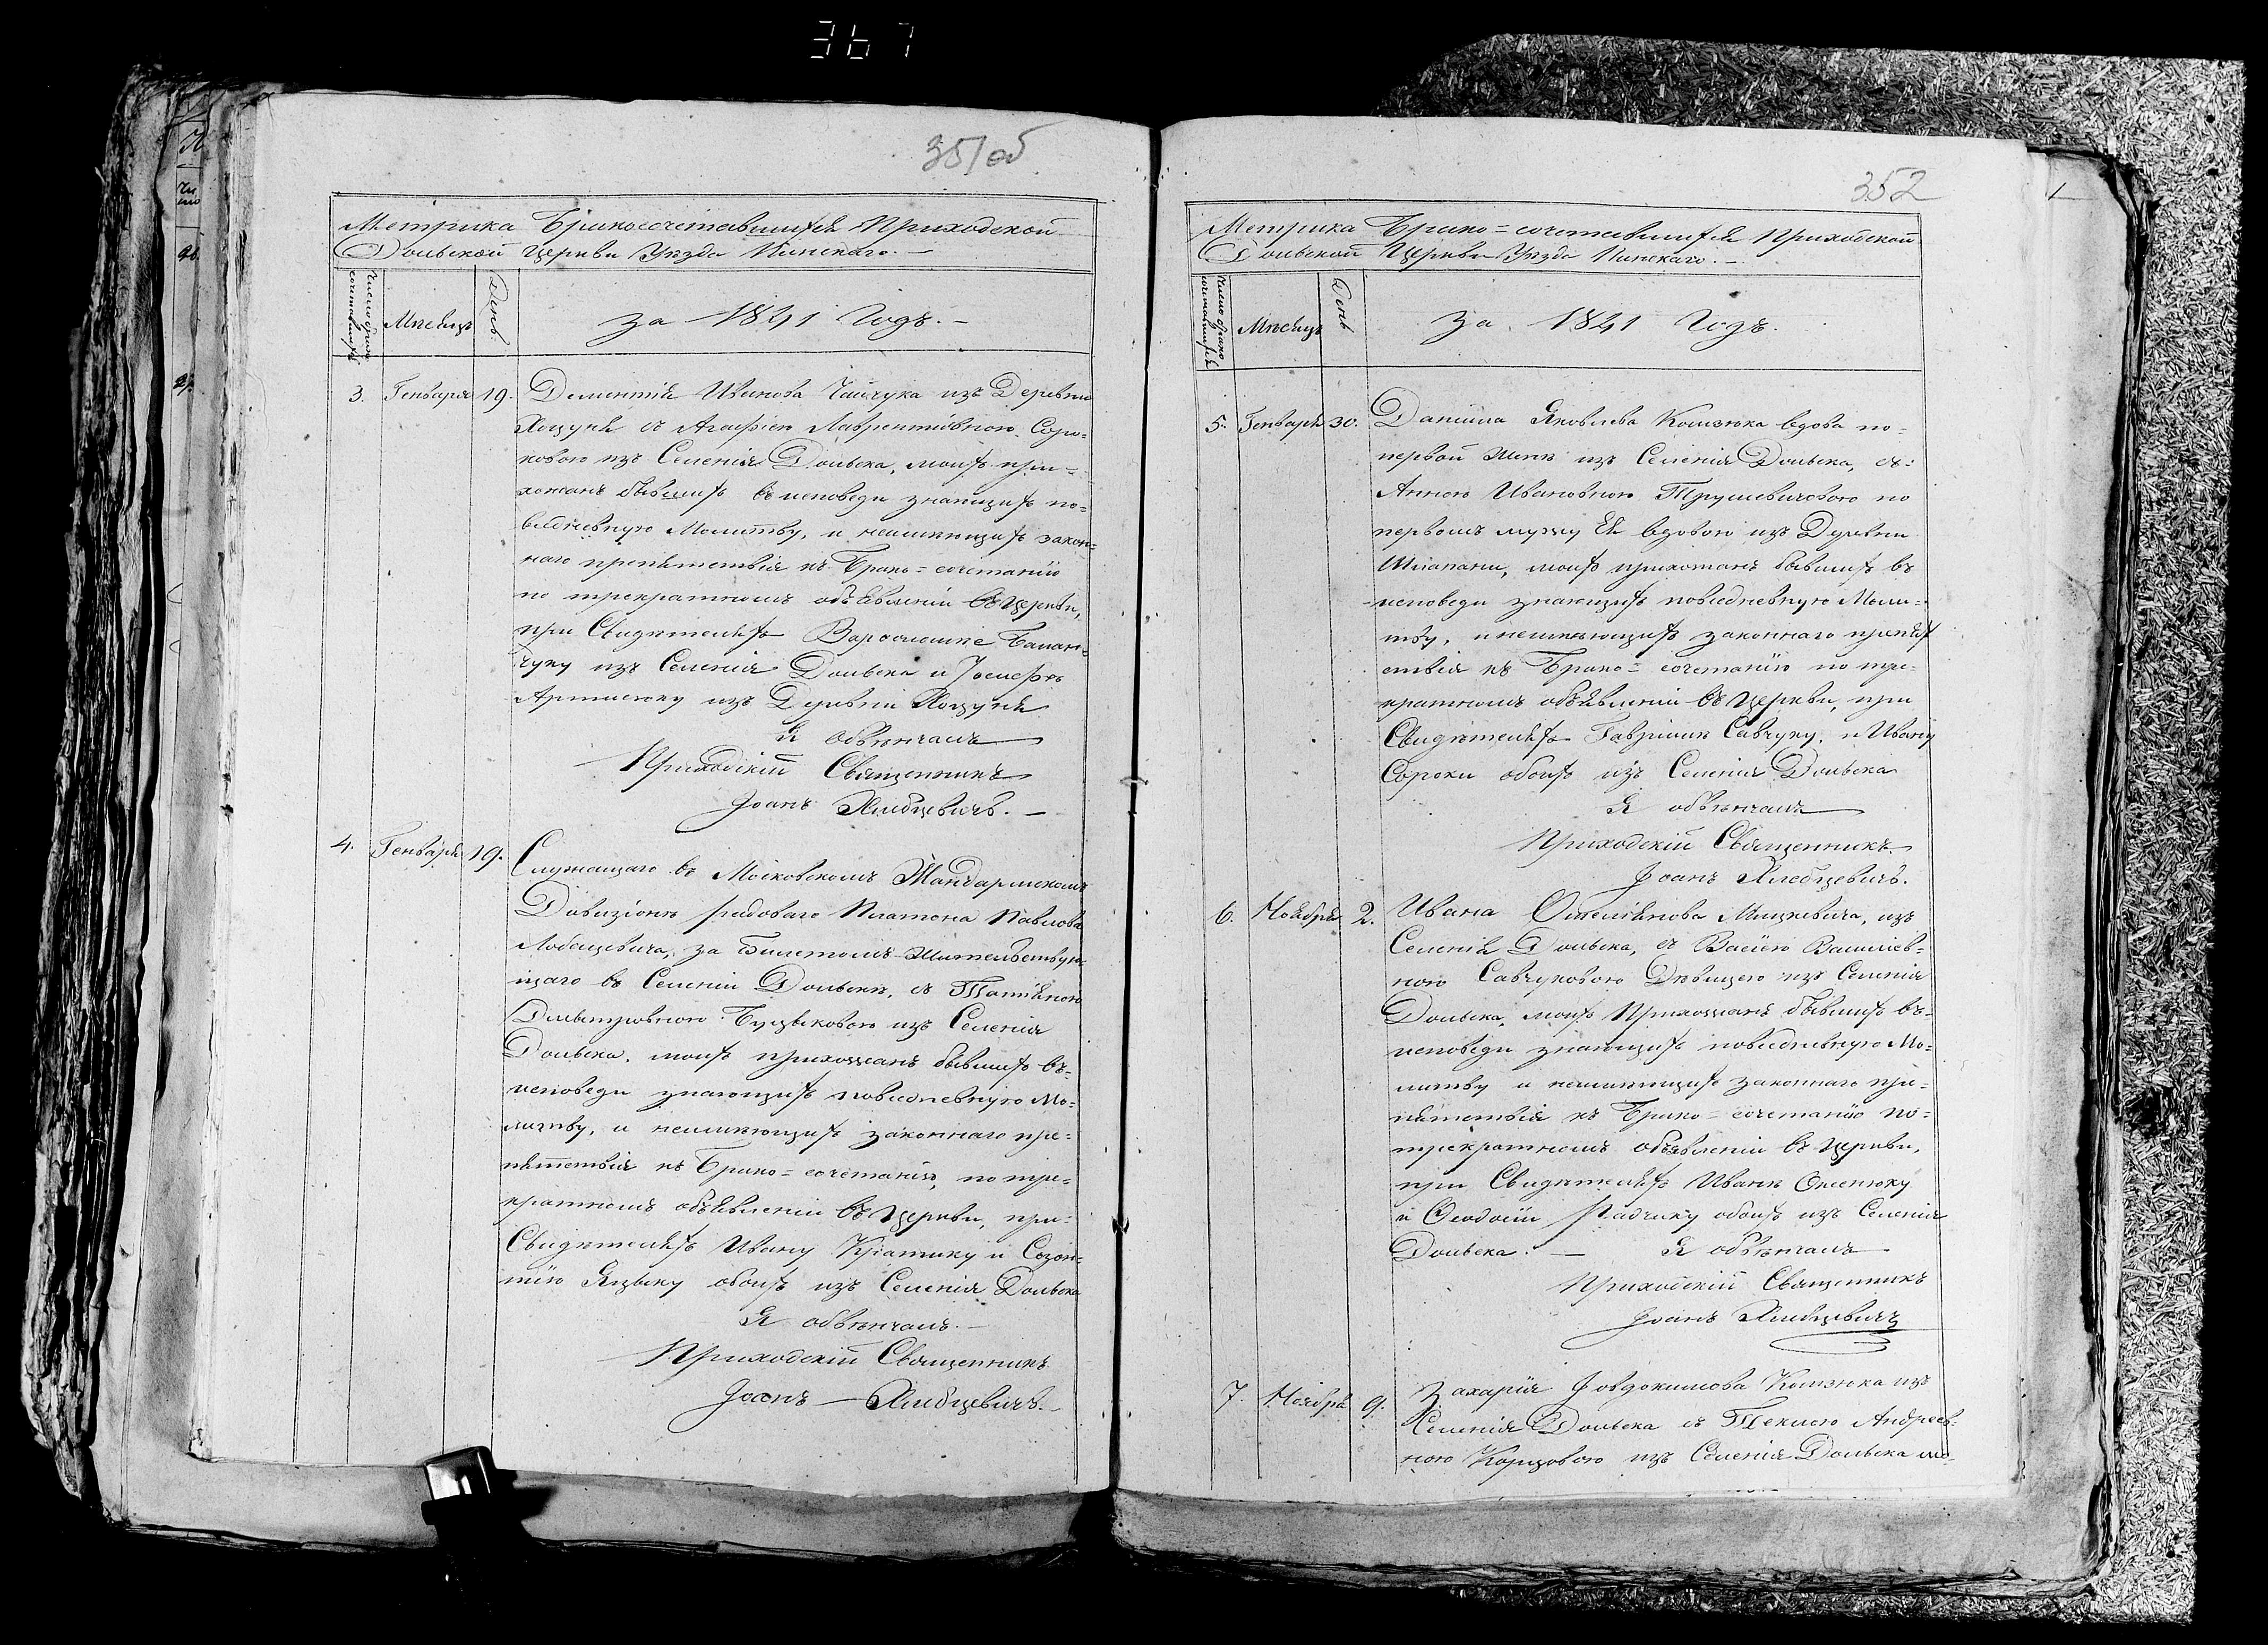 367
351об
Метрика Бракосочетавшихся Приходской
Дольской Церкви Уезда Пинскаго. —
Число брако сочетавшихся
Месяцъ
День.
За 1841 Годъ. —
3. Генваря 19. Дементія Иванова из Деревни
съ Агафіею Лаврентіевною Соро=
ковою изъ Селенія Дольска, моихъ при=
хожанъ бывшихъ въ исповеди знающихъ по=
вседневную Молитву, и неимѣющихъ закон=
наго препятствія къ Брако=сочетанію
по трекратномъ объявленіи въ Церкви,
при Свидѣтеляхъ
изъ Селенія Дольска и Іосифѣ
изъ Деревни
Я обвѣнчалъ
Приходскій Священникъ
Іоанъ Хлебцевичъ. —
4. Генваря 19. Служащаго въ Московскомъ Жандармскомъ
Дивизіонѣ рядоваго Платона Павлова
за Билетомъ Жительствую=
щаго въ Селеніи Дольскѣ, съ Татіяною
Дмытровною изъ Селенія
Дольска, моихъ прихожанъ бывшихъ въ=
исповеди знающихъ повседневную Мо=
литву, и неимѣющихъ законнаго пре=
пятствія къ Брако=сочетанію, по тре=
кратномъ объявленіи въ Церкви, при=
Свидѣтеляхъ Ивану и Созон=
тію Яцыку обоихъ изъ Селенія Дольска
Я обвѣнчалъ. —
Приходскій Священникъ
Іоанъ — Хлебцевичъ. —
352
1
Метрика Брако=сочетавшихся Приходской
Дольской Церкви Уезда Пинскаго. —
Число брако сочетавшихся
Месяцъ
День
За 1841 Годъ.
5. Генваря 30. Даніила Яковлева Колзюка вдова по=
первой Жене изъ Селенія Дольска, съ=
Анною Ивановною Трушевичовою по
первомъ мужу Ея вдовою изъ Деревни
Шлапани, моихъ прихожанъ бывшихъ въ
исповеди знающихъ повседневную Моли=
тву, и неимѣющихъ законнаго препят
ствія къ Брако=сочетанію по тре=
кратномъ объявленіи въ Церкви, при
Свидѣтеляхъ Гавріилѣ Савчуку, и Ивану
Сороки обоихъ изъ Селенія Дольска
Я обвѣнчалъ
Приходскій Священникъ
Іоанъ Хлебцевичъ.
6. Ноября 2. Ивана Омеліянова Мицкевича, изъ
Селенія Дольска, съ Васею Василіев=
ною Савчуковою Дѣвицею изъ Селенія
Дольска, моихъ Прихожанъ бывшихъ въ=
исповеди знающихъ повседневную Мо=
литву и неимѣющихъ законнаго пре=
пятствія къ Брако=сочетанію по=
трекратномъ объявленіи въ Церкви,
при Свидѣтеляхъ Иванѣ Оксенюку
и Феодосіи обоихъ изъ Селенія
Дольска. — Я обвѣнчалъ
Приходскій Священникъ
Іоанъ Хлебцевичъ
7. Ноября 9. Захарія Іовдокимова Колзюка изъ
Селенія Дольска съ Теклею Андреев=
ною изъ Селенія Дольска мо=